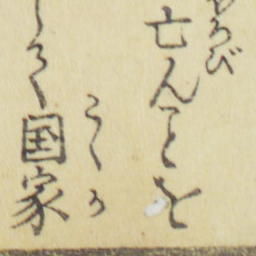 ろび
亡んことを
して国家
こくか